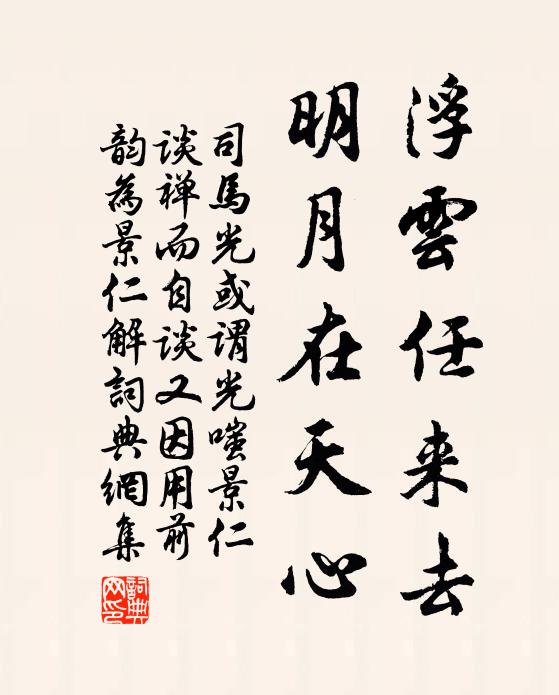 浮雲任来去
明月在天心
司馬光或謂光嗤景仁
談禅而自談又因用前
韵為景仁解詞典網集
詞典
网印